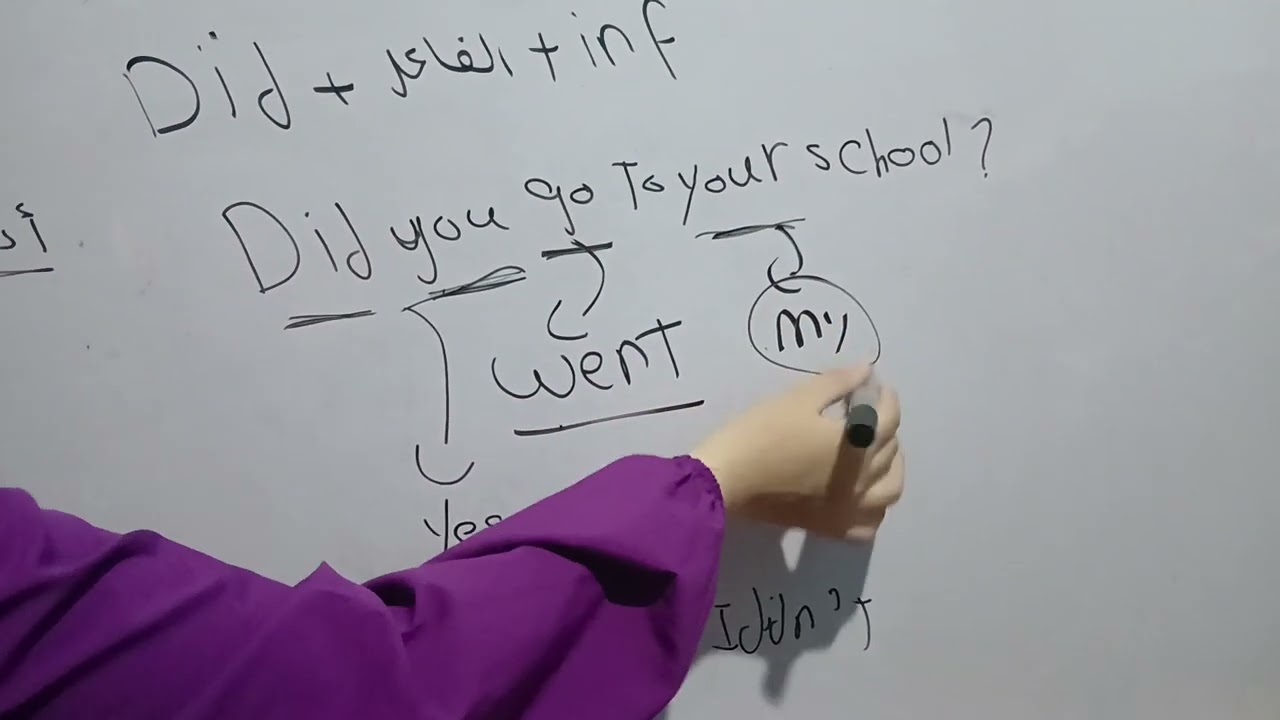 Did + الفاعل + inf
Did you go To your school?
went my
Yes
I didn't